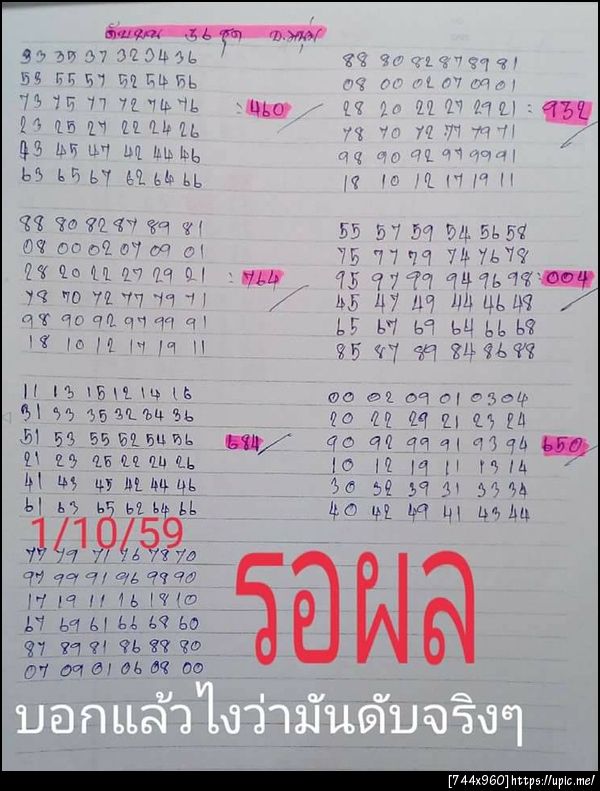 ดับบน 36 ชุด อ.หนุ่ม
33 35 37 32 34 36
53 55 57 52 54 56
73 75 77 72 74 76 : 460
23 25 27 22 24 26
43 45 47 42 44 46
63 65 67 62 64 66
88 80 82 87 89 81
08 00 02 07 09 01
28 20 22 27 29 21 : 932
78 70 72 77 79 71
98 90 92 97 99 91
18 10 12 17 19 11
88 80 82 87 89 81
08 00 02 07 09 01
28 20 22 27 29 21 : 764
78 70 72 77 79 71
98 90 92 97 99 91
18 10 12 17 19 11
55 57 59 54 56 58
75 77 79 74 76 78
95 97 99 94 96 98 : 004
45 47 49 44 46 48
65 67 69 64 66 68
85 87 89 84 86 88
11 13 15 12 14 16
31 33 35 32 34 36
51 53 55 52 54 56 684
21 23 25 22 24 26
41 43 45 42 44 46
61 63 65 62 64 66
00 02 09 01 03 04
20 22 29 21 23 24
90 92 99 91 93 94 650
10 12 19 11 13 14
30 32 39 31 33 34
40 42 49 41 43 44
1/10/59
77 79 71 76 78 70
97 99 91 96 98 90
17 19 11 16 18 10
67 69 61 66 68 60
87 89 81 86 88 80
07 09 01 06 08 00
รอผล
บอกแล้วไงว่ามันดับจริงๆ
[744x960]https://upic.me/